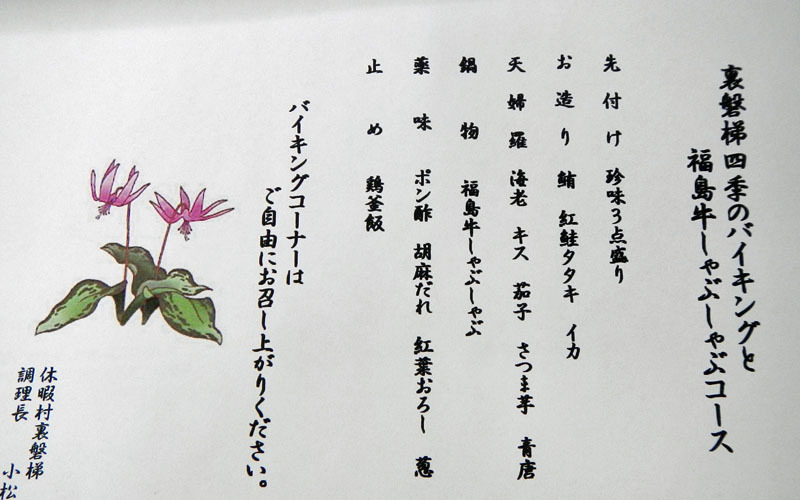 裏磐梯四季のバイキングと
福島牛しゃぶしゃぶコース
先付け 珍味３点盛り
お造り 鮪 紅鮭タタキ イカ
天婦羅 海老 キス 茄子 さつま芋 青唐
鍋物 福島牛しゃぶしゃぶ
薬味 ポン酢 胡麻だれ 紅葉おろし 葱
止め 鶏釜飯
バイキングコーナーは
ご自由にお召し上がりください。
休暇村裏磐梯
調理長 小松